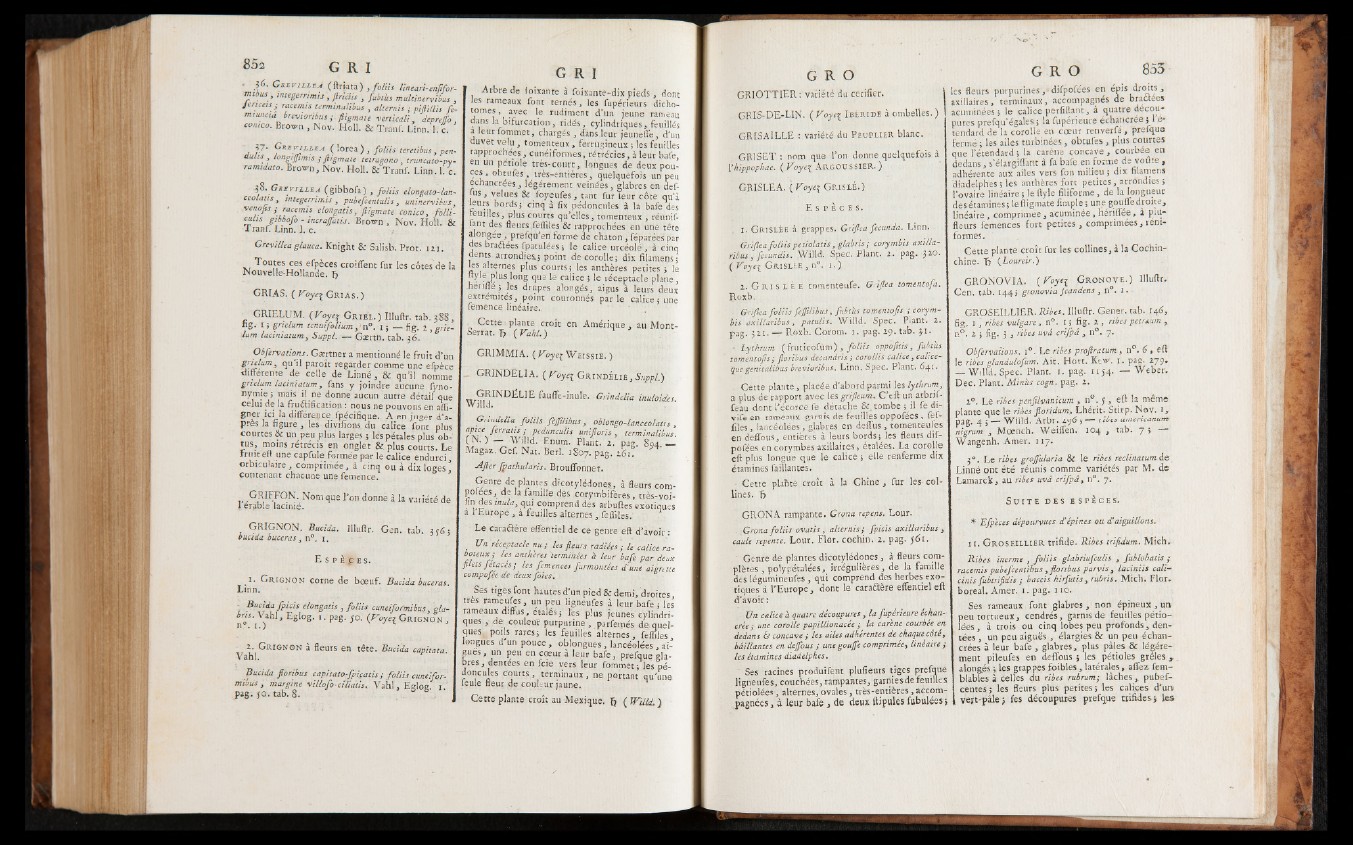 852
GRI
36. GREVILLEA (striata), foliis lineari-ensifor-
mibus, integerrimis, strictis, subtùs multinervibus,
sericeis; racemis terminalibus, alternis; pistillis se-
miuncià brevioribus; stigmate verticali, depresso,
conico. Brown, Nov. Holl. & Trans. Linn. l. c.
37. GREVILLEA (lorea), foliis teretibus, pen-
dulis, longissimis; stigmate tetragono, truncato-py-
ramidato. Brown, Nov. Holl. & Trans. Linn. l. c.
38. GREVILLEA (gibbosa), foliis elongato-lan-
ceolatis, integerrimis, pubescentulis, uninervibus,
venosis; racemis elongatis, stigmate conico, folli-
culis gibboso-incrassatis. Brown, Nov. Holl. &
Trans. Linn. l. c.
Grevillea glauca. Knight & Salisb. Prot. 121.
Toutes ces espèces croissent sur les côtes de la
Nouvelle-Hollande. ♄
GRIAS. (Voyez GRIAS.)
GRIELUM. (Voyez GRIEL.) Illustr. tab. 388,
fig. 1; grielum tenuifolium, n°. 1; — fig. 2, grie-
lum laciniatum, Suppl. — Gærth. tab. 36.
Observations. Gærtner a mentionné le fruit d'un
grielum, qu'il paroît regarder comme une espèce
différente de celle de Linné, & qu'il nomme
grielum laciniatum, sans y joindre aucune syno-
nymie; mais il ne donne aucun autre détail que
celui de la fructification: nous ne pouvons en assi-
gner ici la différence spécifique. A en juger d'a-
près la figure, les divisions du calice sont plus
courtes & un peu plus larges; les pétales plus ob-
tus, moins rétrécis en onglet & plus courts. Le
fruit est une capsule formée par le calice endurci,
orbiculaire, comprimée, à cinq ou à dix loges,
contenant chacune une semence.
GRIFFON. Nom que l'on donne à la variété de
l'érable lacinié.
GRIGNON. Bucida. Illustr. Gen. tab. 356;
bucida buceras, n°. 1.
ESPÈCES.
1. GRIGNON corne de bœuf. Bucida buceras.
Linn.
Bucida spicis elongatis, foliis cuneiformibus, gla-
bris. Vahl, Eglog. 1. pag. 50. (Voyez GRIGNON,
n°. 1.)
2. GRIGNON à fleurs en tête. Bucida capitata.
Vahl.
Bucida floribus capitato-spicatis; foliis cuneifor-
mibus, margine villoso-ciliatis. Vahl, Eglog. 1.
pag. 50. tab. 8.
GRI
Arbre de soixante à soixante-dix pieds, dont
les rameaux sont ternés, les supérieurs dicho-
tomes, avec le rudiment d'un jeune rameau
dans la bifurcation, ridés, cylindriques, feuillés
à leur sommet, chargés, dans leur jeunesse, d'un
duvet velu, tomenteux, ferrugineux; les feuilles
rapprochées, cunéiformes, rétrécies, à leur base,
en un pétiole très-court, longues de deux pou-
ces, obtuses, très-entières, quelquefois un peu
échancrées, légèrement veinées, glabres en des-
sus, velues & soyeuses, tant sur leur côte qu'à
leurs bords; cinq à six pédoncules à la base des
feuilles, plus courts qu'elles, tomenteux, réunis-
sant des fleurs sessiles & rapprochées en une tête
alongée, presqu'en forme de chaton, séparées par
des bractées spatulées; le calice urcéolé, à cinq
dents arrondies; point de corolle; dix filamens;
les alternes plus courts; les anthères petites; le
style plus long que le calice; le réceptacle plane,
hérissé; les drupes alongés, aigus à leurs deux
extrémités, point couronnés par le calice; une
semence linéaire.
Cette plante croît en Amérique, au Mont-
Serrat. ♄ (Vahl.)
GRIMMIA. (Voyez WEISSIE.)
GRINDÉLIA. (Voyez GRINDÉLIE, Suppl.)
GRINDÉLIE fausse-inule. Grindelia inuloides.
Willd.
Grindelia foliis sessilibus, oblongo-lanceolatis,
apice serratis; pedunculis unifloris, terminalibus.
(N.) — Willd. Enum. Plant. 2. pag. 894. —
Magaz. Gef. Nat. Berl. 1807. pag. 261.
Aster spathularis. Broussonnet.
Genre de plantes dicotylédones, à fleurs com-
posées, de la famille des corymbifères, très-voi-
sin des inula, qui comprend des arbustes exotiques
à l'Europe, à feuilles alternes, sessiles.
Le caractère essentiel de ce genre est d'avoir:
Un réceptacle nu; les fleurs radiées; le calice ra-
boteux; les anthères terminées à leur base par deux
filets sétacés; les semences surmontées d'une aigrette
composée de deux soies.
Ses tiges sont hautes d'un pied & demi, droites,
très rameuses, un peu ligneuses à leur base; les
rameaux diffus, étalés; les plus jeunes cylindri-
ques, de couleur purpurine, parsemés de quel-
ques poils rares; les feuilles alternes, sessiles,
longues d'un pouce, oblongues, lancéolées, ai-
gues, un peu en cœur à leur base, presque gla-
bres, dentées en scie vers leur sommet; les pé-
doncules courts, terminaux, ne portant qu'une
seule fleur de couleur jaune.
Cette plante croît au Mexique. ♄ (Willd.)
GRO
GRIOTTIER: variété du cerisier.
GRIS-DE-LIN. (Voyez IBÉRIDE à ombelles.)
GRISAILLE: variété du PEUPLIER blanc.
GRISET: nom que l'on donne quelquefois à
l'hippophae. (Voyez ARGOUSSIER.)
GRISLEA. (Voyez GRISLÉ.)
ESPÈCES.
1. GRISLÉE à grappes. Grislea secunda. Linn.
Grislea foliis petiolatis, glabris; corymbis axilla-
ribus, secundis. Willd. Spec. Plant. 2. pag. 320.
(Voyez GRISLÉE, n°. 1.)
2. GRISLÉE tomenteuse. Grislea tomentosa.
Roxb.
Grislea foliis sessilibus, subtùs tomentosis; corym-
bis axillaribus, patulis. Willd. Spec. Plant. 2.
pag. 321. — Roxb. Corom. 1. pag. 29. tab. 31.
Lythrum (fruticosum), foliis oppositis, subtùs
tomentosis; floribus decandris; corollis calice, calice-
que genitalibus brevioribus. Linn. Spec. Plant. 641.
Cette plante, placée d'abord parmi les lythrum,
a plus de rapport avec les grisleum. C'est un arbris-
seau dont l'écorce se détache & tombe; il se di-
vise en rameaux garnis de feuilles opposées, ses-
siles, lancéolées, glabres en dessus, tomenteuses
en dessous, entières à leurs bords; les fleurs dis-
posées en corymbes axillaires, étalées. La corolle
est plus longue que le calice; elle renferme dix
étamines saillantes.
Cette plante croît à la Chine, sur les col-
lines. ♄
GRONA rampante. Grona repens. Lour.
Grona foliis ovatis, alternis; spicis axillaribus,
caule repente. Lour. Flor. cochin. 2. pag. 561.
Genre de plantes dicotylédones, à fleurs com-
plètes, polypétalées, irrégulières, de la famille
des légumineuses, qui comprend des herbes exo-
tiques à l'Europe, dont le caractère essentiel est
d'avoir:
Un calice à quatre découpures, la supérieure échan-
crée; une corolle papillonacée; la carène courbée en
dedans & concave; les ailes adhérentes de chaque côté,
bâillantes en dessous; une gousse comprimée, linéaire;
les étamines diadelphes.
Ses racines produisent plusieurs tiges presque
ligneuses, couchées, rampantes, garnies de feuilles
pétiolées, alternes, ovales, très-entières, accom-
pagnées, à leur base, de deux stipules subulées;
GRO
853
les fleurs purpurines, disposées en épis droits,
axillaires, terminaux, accompagnés de bractées
acuminées; le calice persistant, à quatre décou-
pures presqu'égales; la supérieure échancrée; l'é-
tendard de la corolle en cœur renversé, presque
fermé; les ailes turbinées, obtuses, plus courtes
que l'étendard; la carène concave, courbée en
dedans, s'élargissant à sa base en forme de voûte,
adhérente aux ailes vers son milieu; dix filamens
diadelphes; les anthères fort petites, arrondies;
l'ovaire linéaire; le style filiforme, de la longueur
des étamines; le stigmate simple; une gousse droite,
linéaire, comprimée, acuminée, hérissée, à plu-
sieurs semences fort petites, comprimées, réni-
formes.
Cette plante croît sur les collines, à la Cochin-
chine. ♄ (Loureir.)
GRONOVIA. (Voyez GRONOVE.) Illustr.
Gen. tab. 144; gronovia scandens, n°. 1.
GROSEILLIER. Ribes. Illustr. Gener. tab. 146,
fig. 1, ribes vulgare, n°. 1; fig. 2, ribes petræum,
n°. 2; fig. 3, ribes uvâ crispâ, n°. 7.
Observations. 1°. Le ribes prostratum, n°. 6, est
le ribes glandulosum. Ait. Hort. Kew. 1. pag. 279.
— Willd. Spec. Plant. 1. pag. 1154. — Weber.
Dec. Plant. Minùs cogn. pag. 2.
2°. Le ribes pensilvanicum, n°. 5, est la même
plante que le ribes floridum, Lhérit. Stirp. Nov. 1,
pag. 4; — Willd. Arbr. 296; — ribes americanum
nigrum, Mœnch. Weissen. 104, tab. 7; —
Wangenh. Amer. 117.
3°. Le ribes grossularia & le ribes reclinatum de
Linné ont été réunis comme variétés par M. de
Lamarck, au ribes uvâ crispâ, n°. 7.
SUITE DES ESPÈCES.
* Espèces dépourvues d'épines ou d'aiguillons.
11. GROSEILLIER trifide. Ribes trifidum. Mich.
Ribes inerme, foliis glabriusculis, sublobatis;
racemis pubescentibus, floribus parvis, laciniis cali-
cinis subtrifidis; baccis hirsutis, rubris. Mich. Flor.
boreal. Amer. 1. pag. 110.
Ses rameaux sont glabres, non épineux, un
peu tortueux, cendrés, garnis de feuilles pétio-
lées, à trois ou cinq lobes peu profonds, den-
tées, un peu aiguës, élargies & un peu échan-
crées à leur base, glabres, plus pâles & légère-
ment pileuses en dessous; les pétioles grêles,
alongés; les grappes foibles, latérales, assez sem-
blables à celles du ribes rubrum; lâches, pubes-
centes; les fleurs plus petites; les calices d'un
vert-pâle; ses découpures presque trifides; les